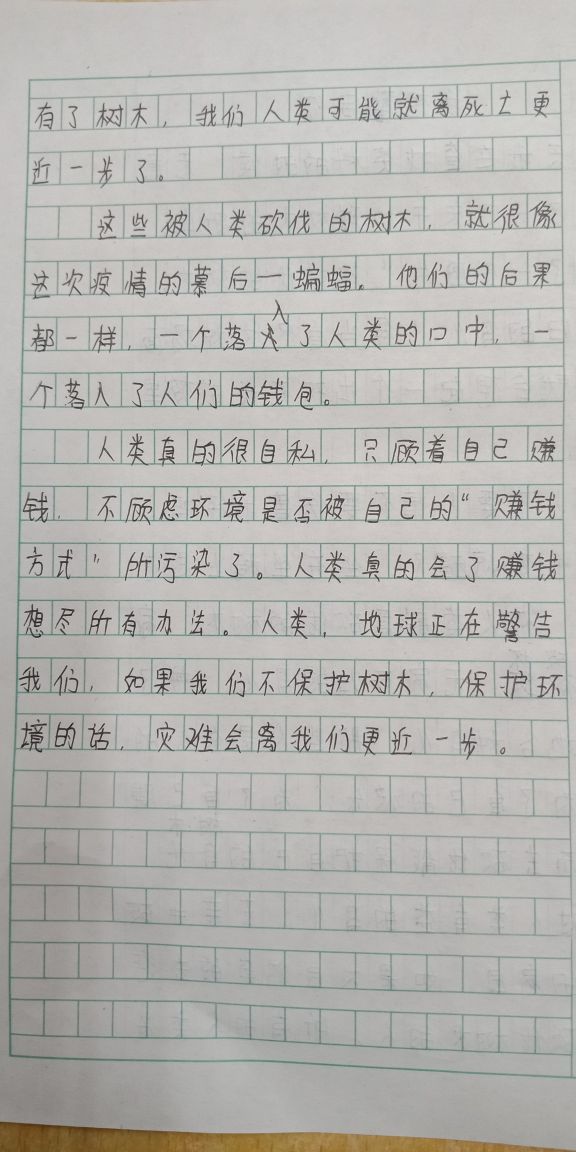 有了树木，我们人类可能就离死亡更
近一步了。
这些被人类砍伐的树木，就很像
这次疫情的幕后一蝙蝠。他们的后果
都一样，一个落入了人类的口中，一
个落入了人们的钱包。
人类真的很自私，只顾着自己赚
钱，不顾虑环境是否被自己的“赚钱
方式”所污染了。人类真的会了赚钱
想尽所有办法。人类，地球正在警告
我们，如果我们不保护树木，保护环
境的话，灾难会离我们更近一步。